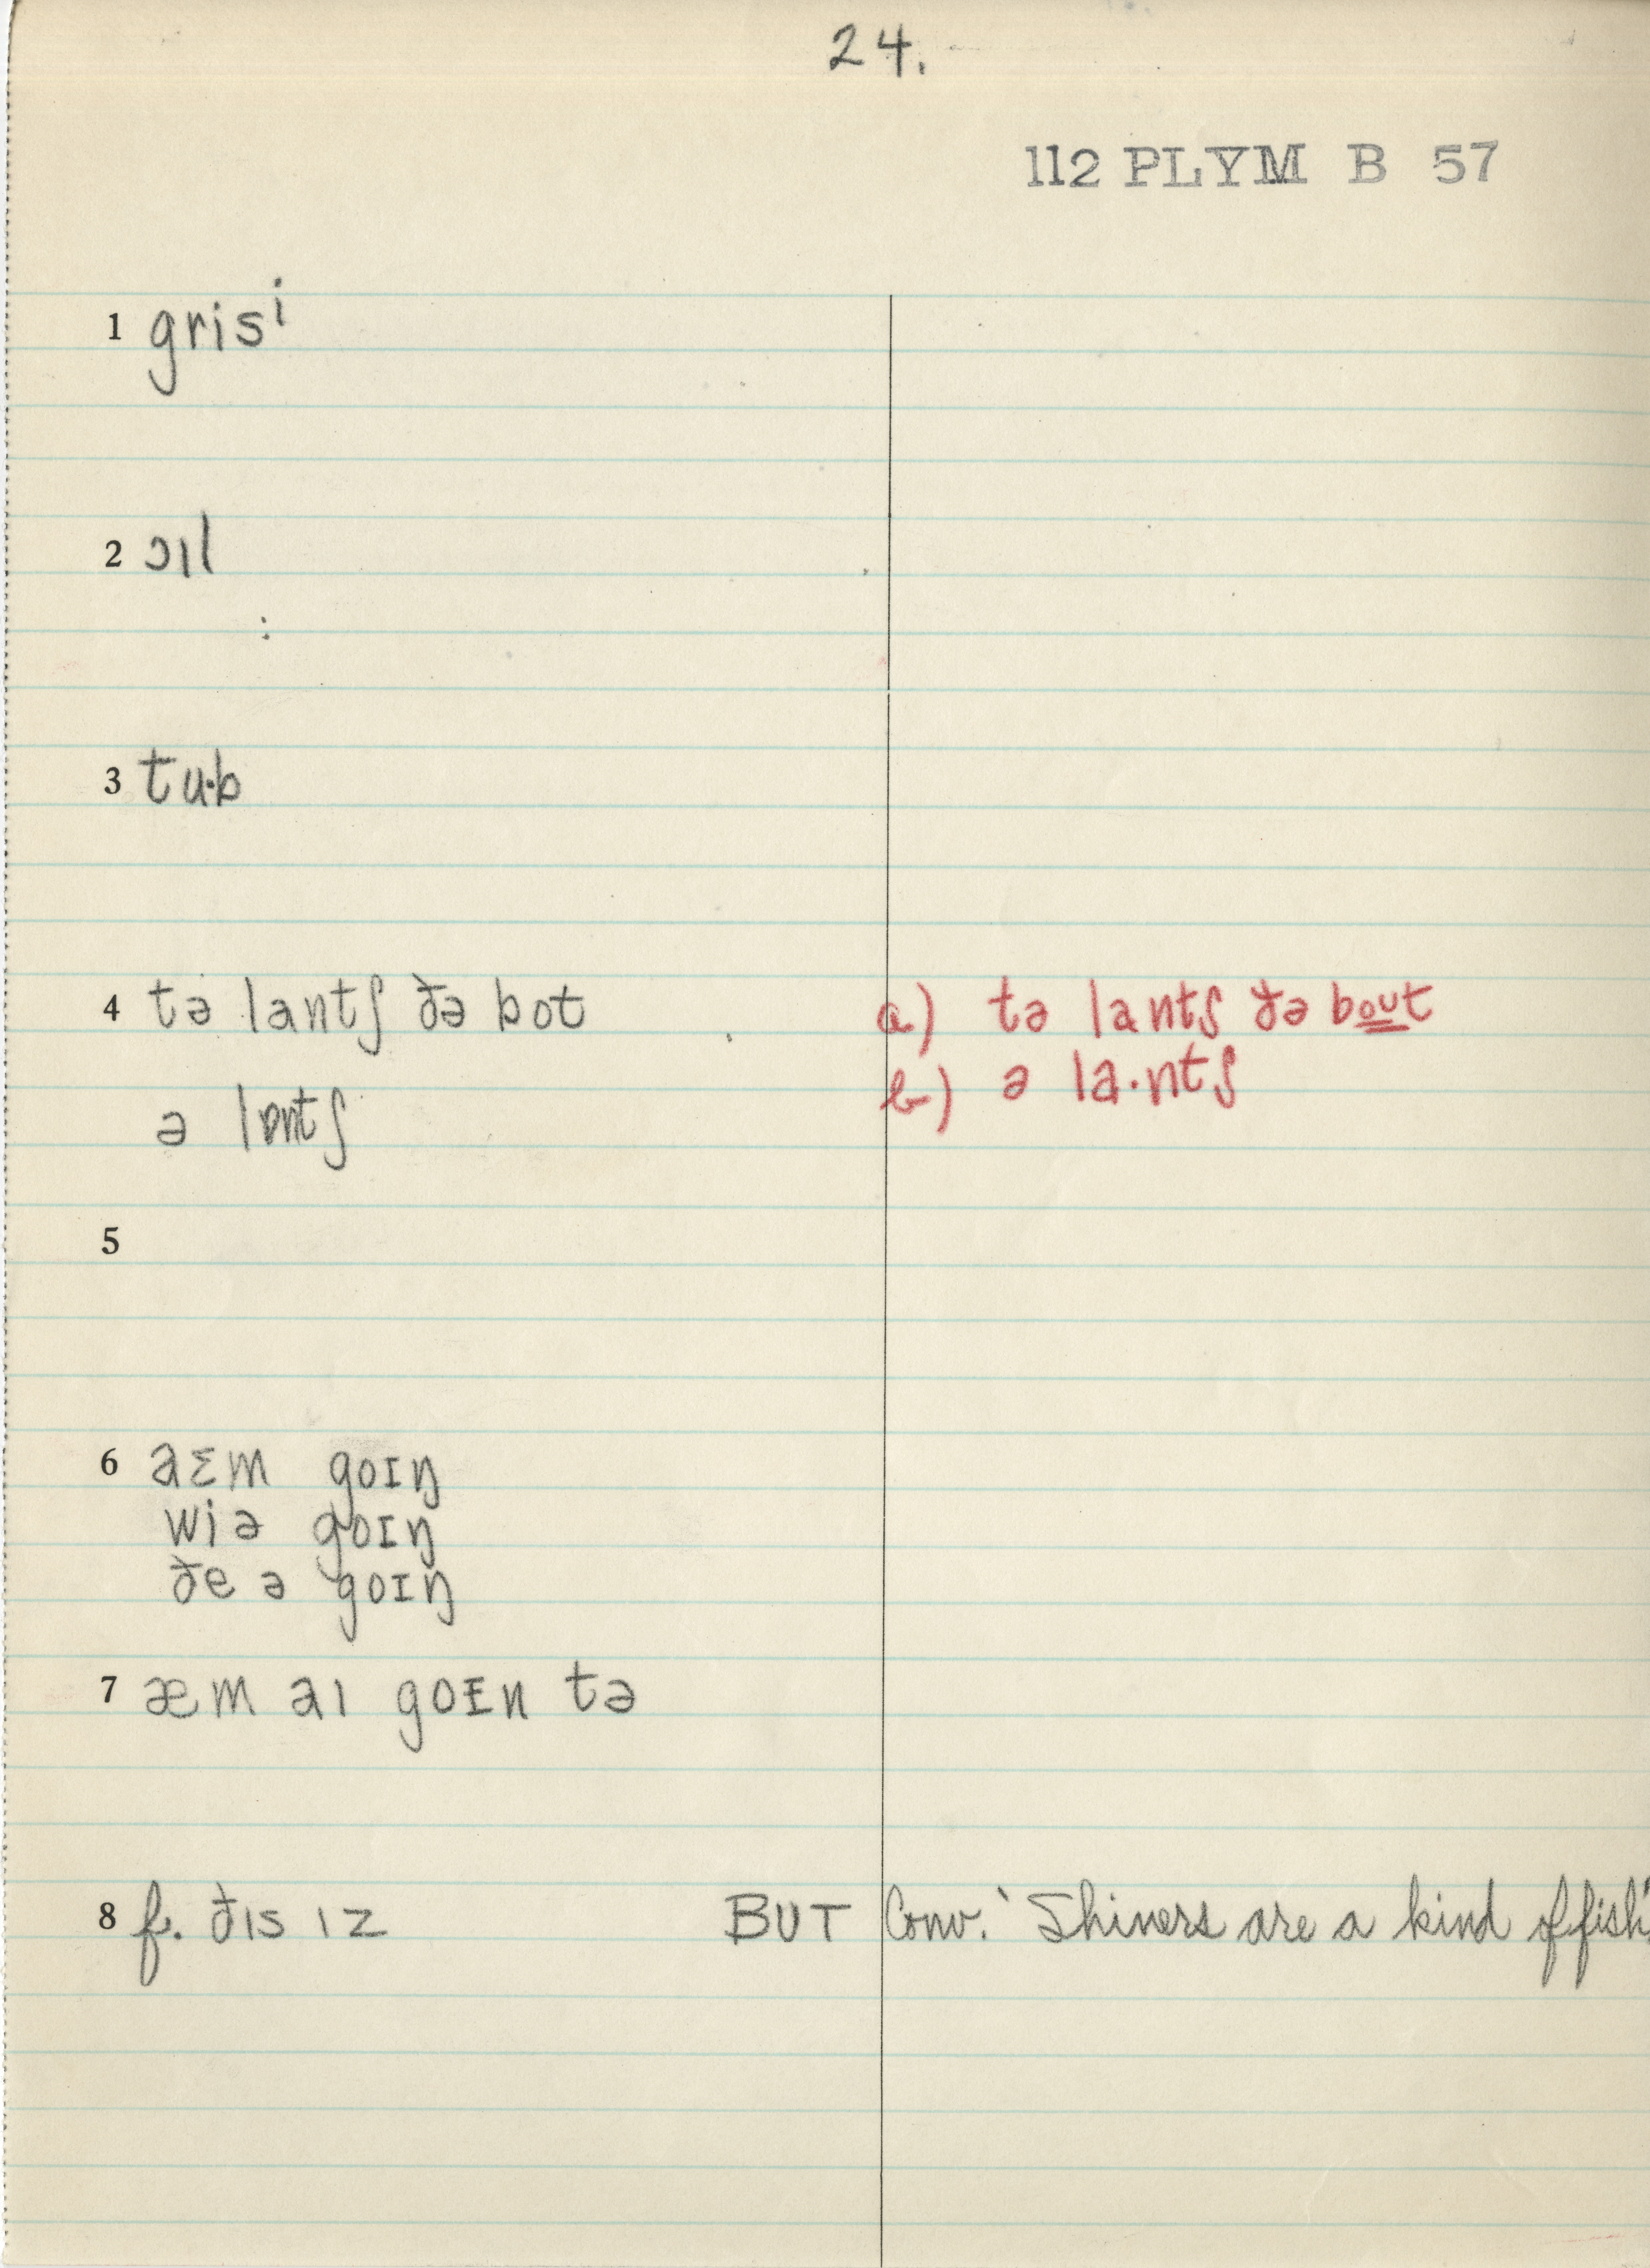 24.
112 PLYM B 57
1 grisⁱ
2 ɔıl
3 tu·b
4 tə lantʃ ðə bot
a) tə lantʃ ðə bout
b) ə la·ntʃ
ə lɒntʃ
5
6 aɛm goɪŋ
wiə goɪŋ
ðe ə goɪŋ
7 æm aı goɪn tə
8 f. ðıs ız BUT Conv. `Shiners are a kind of fish'